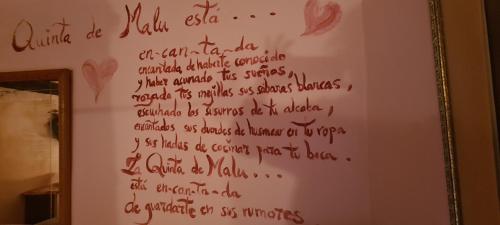 Quinta de Malu está . . . .
en-can-ta-da
encantada de haberte conocido
y haber acunado tus sueños,
rozado tus mejillas sus sábanas blancas,
escuchado los susurros de tu alcoba,
encantados sus duendes de husmear en tu ropa
y sus hadas de cocinar para tu boca.
La Quinta de Malu . . .
está en-can-ta-da
de guardarte en sus rumores